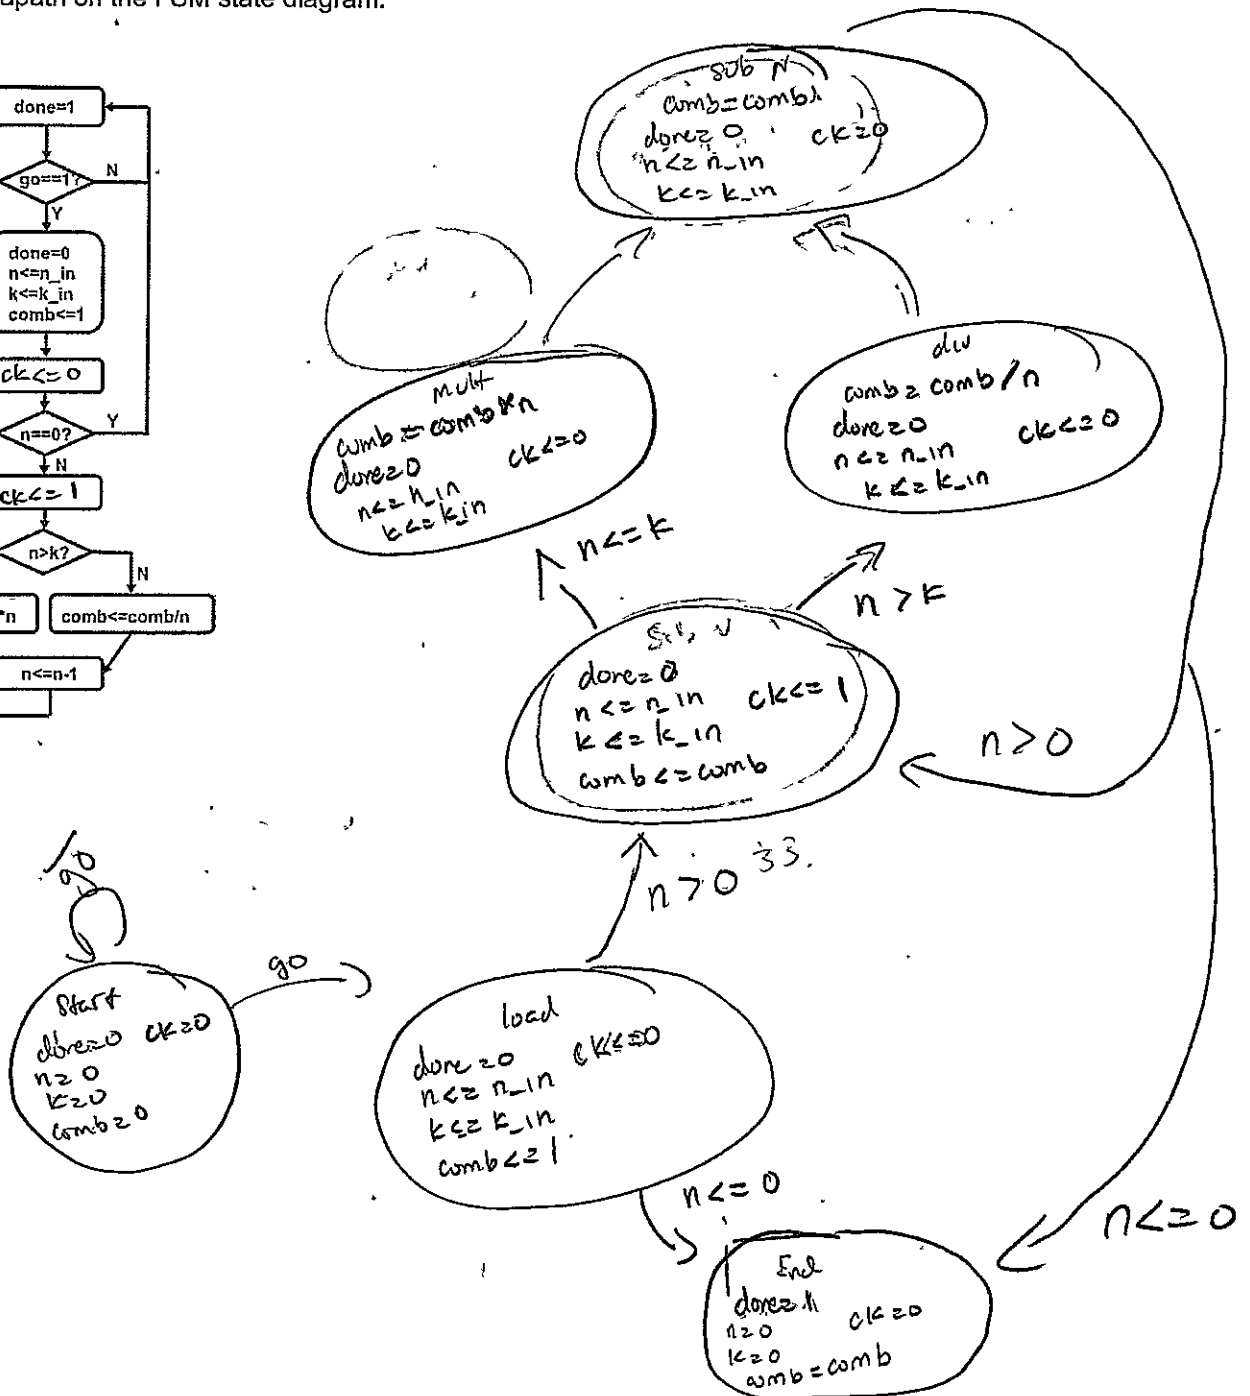 apath on the FSM state diagram.
done=1
go==1?
N
Y
done=0
n<=n_in
k<=k_in
comb<=1
ck<=0
n==0?
Y
N
ck<=1
n>k?
N
*n
comb<=comb/n
n<=n-1
Sub N
comb=comb
done=0 ck=0
n<=n_in
k<=k_in
mult
comb=comb*n
done=0 ck<=0
n<=n_in
k<=k_in
div
comb=comb/n
done=0 ck<=0
n<=n_in
k<=k_in
n<=k
n>k
done=0
n<=n_in ck<=1
k<=k_in
comb<=comb
n>0
n>0
/go
go
Start
done=0 ck=0
n=0
k=0
comb=0
load
done=0 ck<=0
n<=n_in
k<=k_in
comb<=1
n<=0
n<=0
End
done=1
n=0 ck=0
k=0
comb=comb